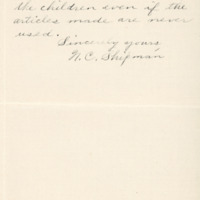 the children even if the
articles made are never
used.
Sincerely yours
N. C. Shipman